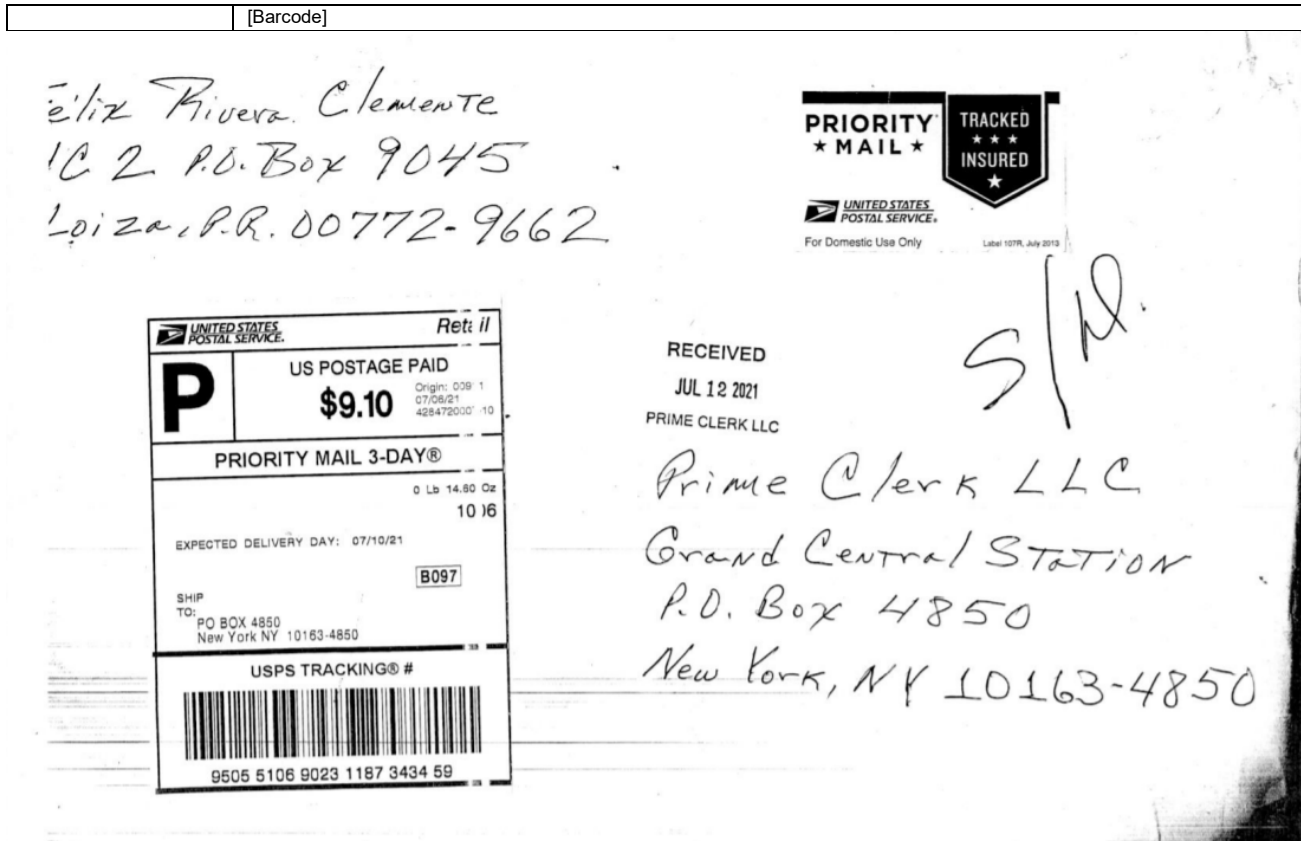 [Barcode]
élix Rivera Clemente
C 2 P.O. Box 9045
Loiza, P.R. 00772-9662
PRIORITY
★ MAIL ★
TRACKED
★ ★ ★
INSURED
★
UNITED STATES
POSTAL SERVICE®
For Domestic Use Only
Label 107R, July 2013
S/N.
UNITED STATES
POSTAL SERVICE.
Retail
P
US POSTAGE PAID
$9.10
Origin:
07/06/21
PRIORITY MAIL 3-DAY®
0 Lb 14.60 Oz
EXPECTED DELIVERY DAY: 07/10/21
B097
SHIP
TO:
PO BOX 4850
New York NY 10163-4850
USPS TRACKING® #
9505 5106 9023 1187 3434 59
RECEIVED
JUL 12 2021
PRIME CLERK LLC
Prime Clerk LLC
Grand Central Station
P.O. Box 4850
New York, NY 10163-4850